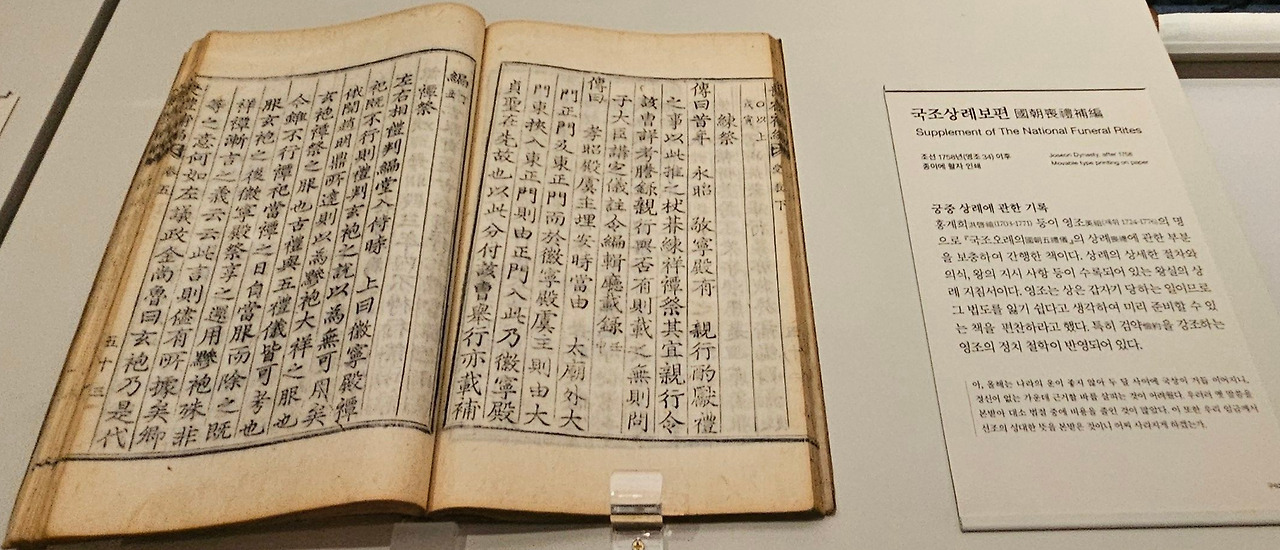 ○以上
戊寅
練祭
傳曰昔年 永昭 敬寧殿有 親行酌獻禮
之事以此推之杖朞練祥禫祭其宜親行令
該曹詳考謄錄親行與否有則載之無則問
于大臣講定儀註令編輯廳載錄
傳曰 孝昭殿虞主埋安時當由 太廟外大
門正門及東正門而於徽寧殿虞主則由大
門東挾入東正門則由正門入此乃徽寧殿
貞聖在先故也以此分付該曹擧行亦載補
編
禫祭
左右相禮判編堂入侍時 上曰徽寧殿禫
祀旣不行則禮判玄袍之說以爲無可用矣
俄聞趙明鼎所達則以爲黲袍大祥之服也
玄袍禫祭之服也古禮與五禮儀皆可考也
今雖不行禫祀當禫之日自當服而除之旣
服玄袍之後徽寧殿祭享之運用黲袍殊非
祥禫漸吉之義云云此言則儘有所據矣卿
等之意何如左議政金尙魯曰玄袍乃是代
卷五
五十三
국조상례보편 國朝喪禮補編
Supplement of The National Funeral Rites
조선 1758년(영조 34) 이후
종이에 활자 인쇄
Joseon Dynasty, after 1758
Movable type printing on paper
궁중 상례에 관한 기록
홍계희洪啓禧(1703-1771) 등이 영조英祖(재위 1724-1776)의 명
으로 『국조오례의國朝五禮儀』의 상례喪禮에 관한 부분
을 보충하여 간행한 책이다. 상례의 상세한 절차와
의식, 왕의 지시 사항 등이 수록되어 있는 왕실의 상
례 지침서이다. 영조는 상은 갑자기 당하는 일이므로
그 법도를 잃기 쉽다고 생각하여 미리 준비할 수 있
는 책을 편찬하라고 했다. 특히 검약儉約을 강조하는
영조의 정치 철학이 반영되어 있다.
아, 올해는 나라의 운이 좋지 않아 두 달 사이에 국상이 거듭 이어지니,
정신이 없는 가운데 근거할 바를 살피는 것이 어려웠다. 우러러 옛 말씀을
본받아 대소 범절 중에 비용을 줄인 것이 많았다. 이 또한 우리 임금께서
선조의 성대한 뜻을 본받은 것이니 어찌 사라지게 하겠는가.